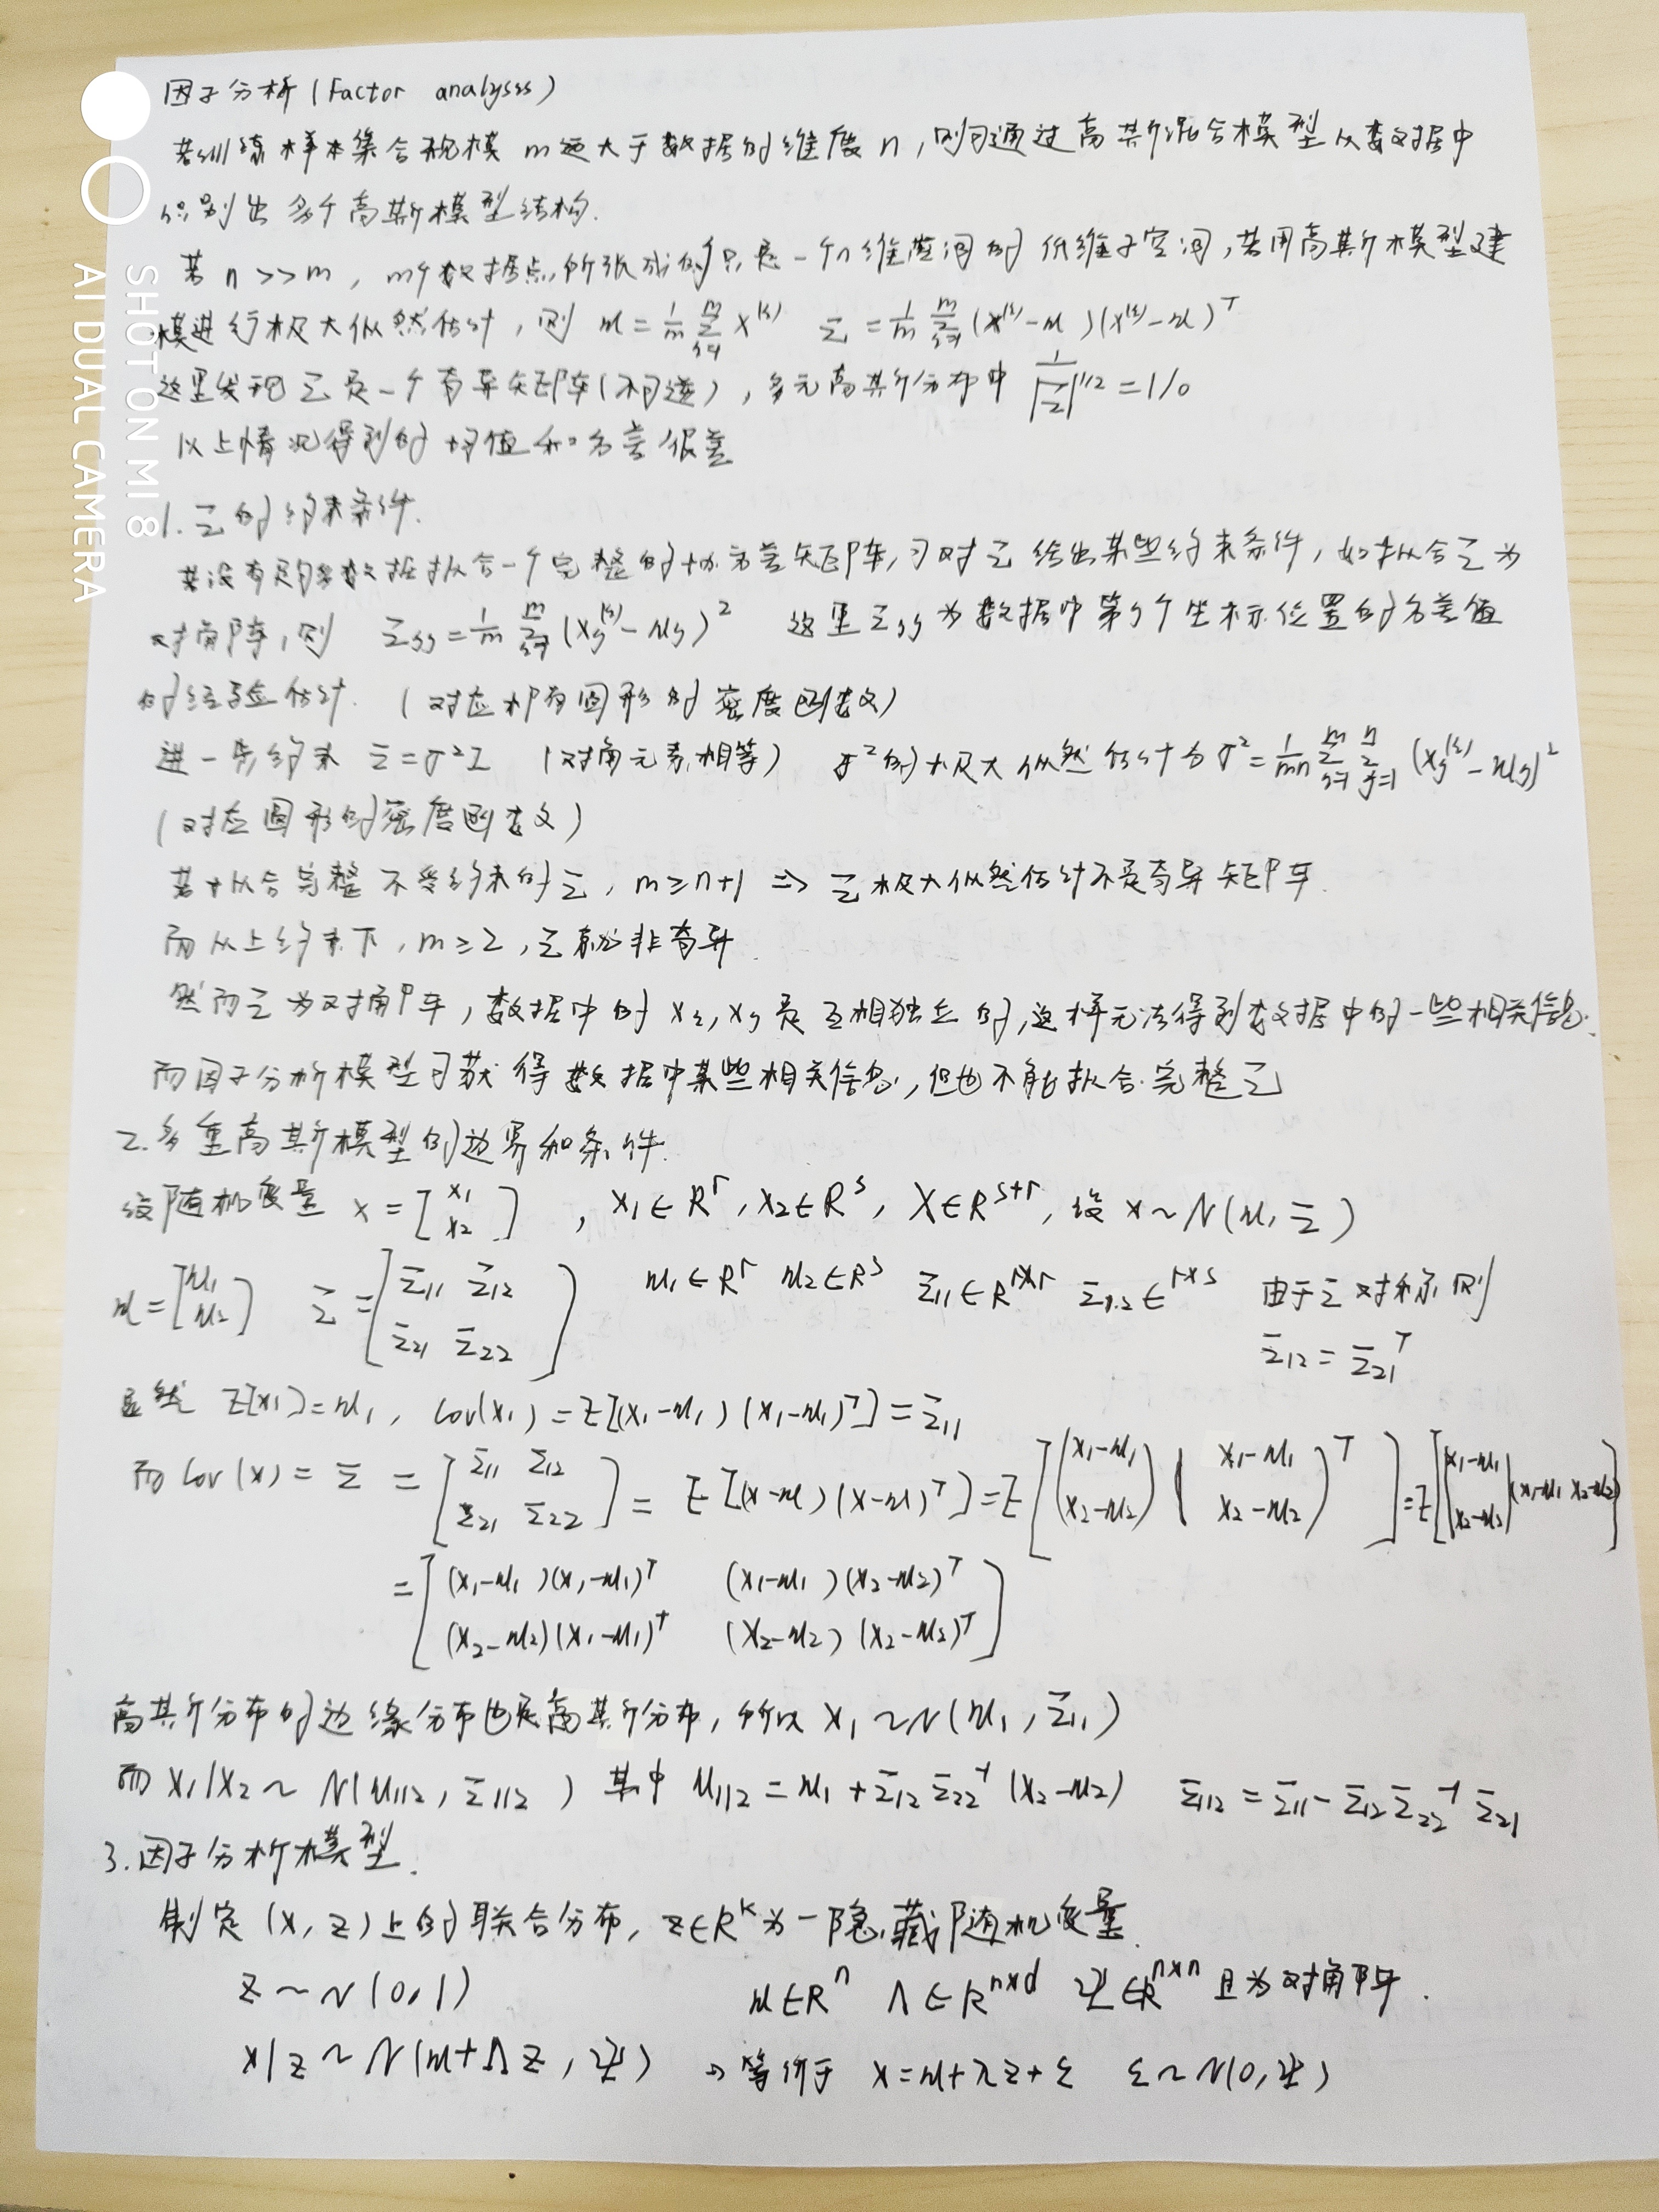 因子分析(Factor analysis)
若训练样本集合规模 m 远大于数据的维度 n，则可通过高斯混合模型从数据中
识别出多个高斯模型结构.
若 n >> m，m个数据点所张成的只是一个n维空间的低维子空间，若用高斯模型建
模进行极大似然估计，则 μ = 1/m Σ_{i=1}^{m} x^{(i)}   Σ = 1/m Σ_{i=1}^{m} (x^{(i)}-μ)(x^{(i)}-μ)^T
这里发现Σ是一个奇异矩阵(不可逆)，多元高斯分布中 1/|Σ|^{1/2} = 1/0
以上情况得到的均值和方差很差
1. Σ的约束条件.
若没有足够数据拟合一个完整的协方差矩阵，可对Σ给出某些约束条件，如拟合Σ为
对角阵，则 Σ_{jj} = 1/m Σ_{i=1}^{m} (x_j^{(i)}-μ_j)^2   这里Σ_{jj}为数据中第j个坐标位置的方差值
的经验估计. (对应椭圆形的密度函数)
进一步约束 Σ=σ²I (对角元素相等) σ²的极大似然估计为 σ² = 1/mn Σ_{i=1}^{m} Σ_{j=1}^{n} (x_j^{(i)}-μ_j)²
(对应圆形的密度函数)
若拟合完整不受约束的Σ，m≥n+1 => Σ极大似然估计不是奇异矩阵.
而从上约束下，m≥2，Σ就非奇异.
然而Σ为对角阵，数据中的 x_i, x_j 是互相独立的，这样无法得到数据中的一些相关信息.
而因子分析模型可获得数据中某些相关信息，但也不能拟合完整Σ
2. 多重高斯模型的边界和条件.
设随机变量 x = [x_1 x_2]，x_1∈R^r, x_2∈R^s, X∈R^{s+r}, 设 x~N(μ, Σ)
μ = [μ_1 μ_2]   Σ = [Σ_11 Σ_12 Σ_21 Σ_22]   μ_1∈R^r μ_2∈R^s Σ_11∈R^{r×r} Σ_12∈^{r×s} 由于Σ对称则
Σ_12 = Σ_21^T
显然 E[x_1]=μ_1, Cov(x_1) = E[(x_1-μ_1)(x_1-μ_1)^T] = Σ_11
而 Cov(x) = Σ = [Σ_11 Σ_12 Σ_21 Σ_22] = E[(x-μ)(x-μ)^T] = E[(x_1-μ_1 x_2-μ_2)(x_1-μ_1 x_2-μ_2)^T] = E[(x_1-μ_1 x_2-μ_2)(x_1-μ_1 x_2-μ_2)]
= [(x_1-μ_1)(x_1-μ_1)^T   (x_1-μ_1)(x_2-μ_2)^T
(x_2-μ_2)(x_1-μ_1)^T   (x_2-μ_2)(x_2-μ_2)^T]
高斯分布的边缘分布也是高斯分布，所以 x_1~N(μ_1, Σ_11)
而 x_1|x_2 ~ N(μ_{1|2}, Σ_{1|2}) 其中 μ_{1|2} = μ_1 + Σ_12 Σ_22^{-1} (x_2-μ_2)   Σ_{1|2} = Σ_11 - Σ_12 Σ_22^{-1} Σ_21
3. 因子分析模型.
制定 (x, z)上的联合分布，z∈R^k为一隐藏随机变量.
z ~ N(0, I)   μ∈R^n Λ∈R^{n×d} Ψ∈R^{n×n} 且为对角阵.
x|z ~ N(μ+Λz, Ψ) → 等价于 x=μ+λz+ε   ε~N(0, Ψ)
SHOT ON MI 8
AI DUAL CAMERA